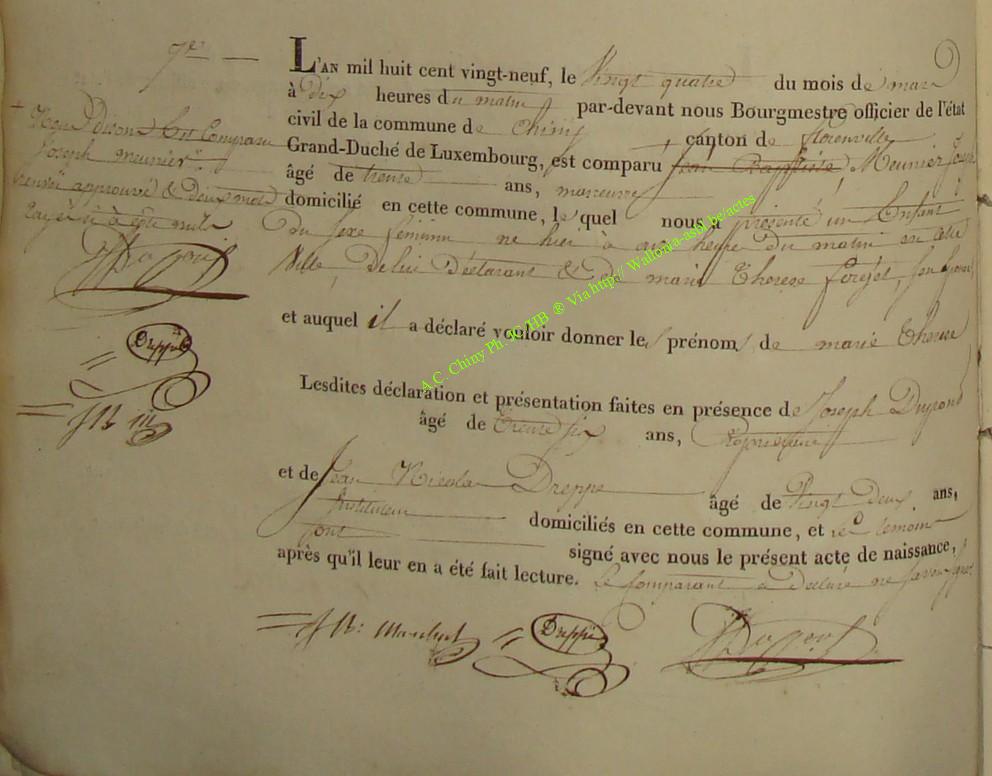 7e —
L'AN mil huit cent vingt-neuf, le Vingt quatre du mois de mars
à dix heures du matin par-devant nous Bourgmestre officier de l'état
civil de la commune de Chiny canton de florenville
Grand-Duché de Luxembourg, est comparu jean Baptiste Meunier Joseph
âgé de trente ans, manœuvre
domicilié en cette commune, lequel nous a présenté un Enfant
Du sexe féminin né hier à onze heure du matin en cette
Ville, de lui Déclarant & de marie Therese forget, sa femme
et auquel il a déclaré vouloir donner les prénoms de marie Therese
Lesdites déclaration et présentation faites en présence de Joseph Dupont
âgé de trente six ans,
et de Jean Nicolas Dreppe âgé de Vingt Deux ans,
Instituteur domiciliés en cette commune, et les temoins
ont signé avec nous le présent acte de naissance,
après qu'il leur en a été fait lecture. Le Comparant a Déclaré ne savoir signer
+ Comparu
Joseph meunier
renvoi approuvé & deux mots
nuls
JJ Dupont
Dreppe
JB: Dreppe JJ Dupont
A C. Chiny Ph. IC HB ® Via http:// Wallonia-asbl.be/actes